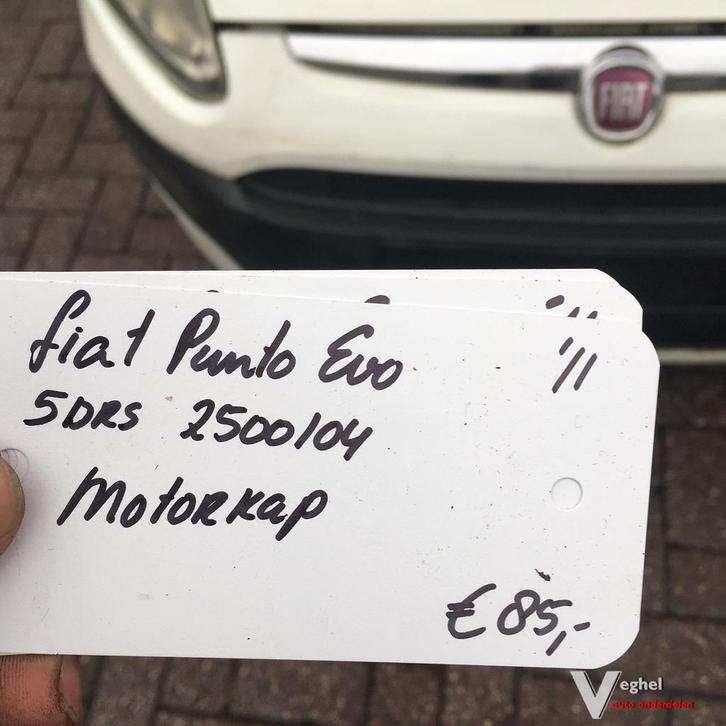 FIAT
fiat Punto Evo '11
5DRS 2500104
Motorkap
€ 85,-
Veghel
auto onderdelen